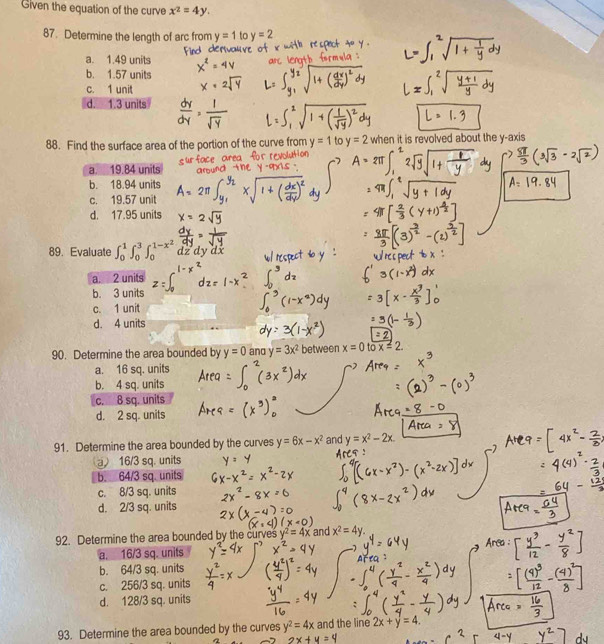 Given the equation of the curve x² = 4y.
87. Determine the length of arc from y = 1 to y = 2
Find derivative of x with respect to y.
a. 1.49 units
b. 1.57 units
c. 1 unit
d. 1.3 units
x² = 4y
x = 2√y
dx/dy = 1/√y
arc length formula:
L = ∫_{y₁}^{y₂} √(1 + (dx/dy)²) dy
L = ∫₁² √(1 + (1/√y)²) dy
L = ∫₁² √(1 + 1/y) dy
L = ∫₁² √((y+1)/y) dy
L = 1.3
88. Find the surface area of the portion of the curve from y = 1 to y = 2 when it is revolved about the y-axis
surface area for revolution
around the y-axis:
a. 19.84 units
b. 18.94 units
c. 19.57 unit
d. 17.95 units
A = 2π ∫_{y₁}^{y₂} x √(1 + (dx/dy)²) dy
x = 2√y
dx/dy = 1/√y
A = 2π ∫₁² 2√y √(1 + 1/y) dy
= 4π ∫₁² √(y + 1) dy
= 4π [2/3 (y+1)^{3/2}]
= 8π/3 [(3)^{3/2} - (2)^{3/2}]
8π/3 (3√3 - 2√2)
A = 19.84
89. Evaluate ∫₀¹ ∫₀³ ∫₀^{1-x²} dz dy dx
a. 2 units
b. 3 units
c. 1 unit
d. 4 units
z = ∫₀^{1-x²} dz = 1-x²
w/ respect to y:
∫₀³ dz
∫₀³ (1-x²) dy
dy = 3(1-x²)
w/ respect to x:
∫₀¹ 3(1-x²) dx
= 3[x - x³/3]₀¹
= 3(1 - 1/3)
= 2
90. Determine the area bounded by y = 0 and y = 3x² between x = 0 to x = 2.
a. 16 sq. units
b. 4 sq. units
c. 8 sq. units
d. 2 sq. units
Area = ∫₀² (3x²) dx
Area = (x³)₀²
Area = x³
= (2)³ - (0)³
Area = 8 - 0
Area = 8
91. Determine the area bounded by the curves y = 6x - x² and y = x² - 2x.
a. 16/3 sq. units
b. 64/3 sq. units
c. 8/3 sq. units
d. 2/3 sq. units
y = y
6x-x² = x²-2x
2x² - 8x = 0
2x(x-4) = 0
(x=4)(x=0)
Area:
∫₀⁴ [(6x-x²) - (x²-2x)] dx
∫₀⁴ (8x-2x²) dx
Area = [4x² - 2/3
= 4(4)² - 2/3
= 64 - 12
Area = 64/3
92. Determine the area bounded by the curves y² = 4x and x² = 4y.
a. 16/3 sq. units
b. 64/3 sq. units
c. 256/3 sq. units
d. 128/3 sq. units
y² = 4x
y²/4 = x
x² = 4y
(y²/4)² = 4y
y⁴/16 = 4y
y⁴ = 64y
Area:
= ∫₀⁴ (y²/4 - x²/4) dy
= ∫₀⁴ (y²/4 - y/4) dy
Area: [y³/12 - y²/8]
= [(4)³/12 - (4)²/8]
Area = 16/3
93. Determine the area bounded by the curves y² = 4x and the line 2x + y = 4.
2x + y = 4
4-y
y²
dy